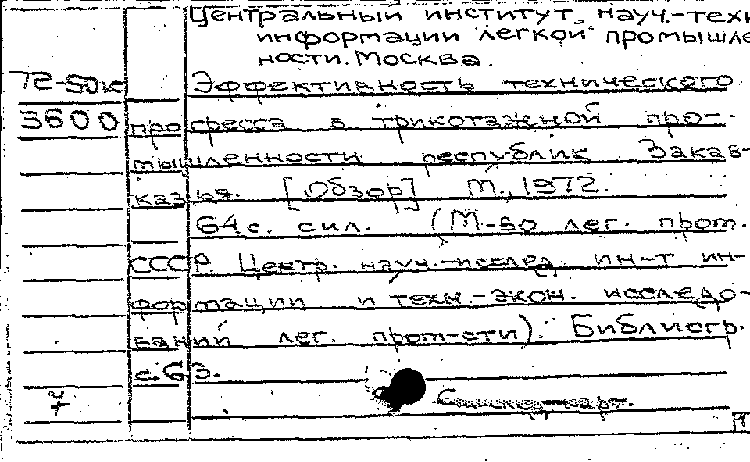 Центральный институт науч.-техн
информации легкой промышле
ности. Москва.
72-50к Эффективность технического
3600 прогресса в трикотажной про-
мышленности республик Закав-
казья. [Обзор] М., 1972.
64 с. с ил. (М-во лег. пром.
СССР. Центр. науч.-исслед. ин-т ин-
формации и техн.-экон. исследо-
ваний лег. пром-сти). Библиогр.
с. 63.